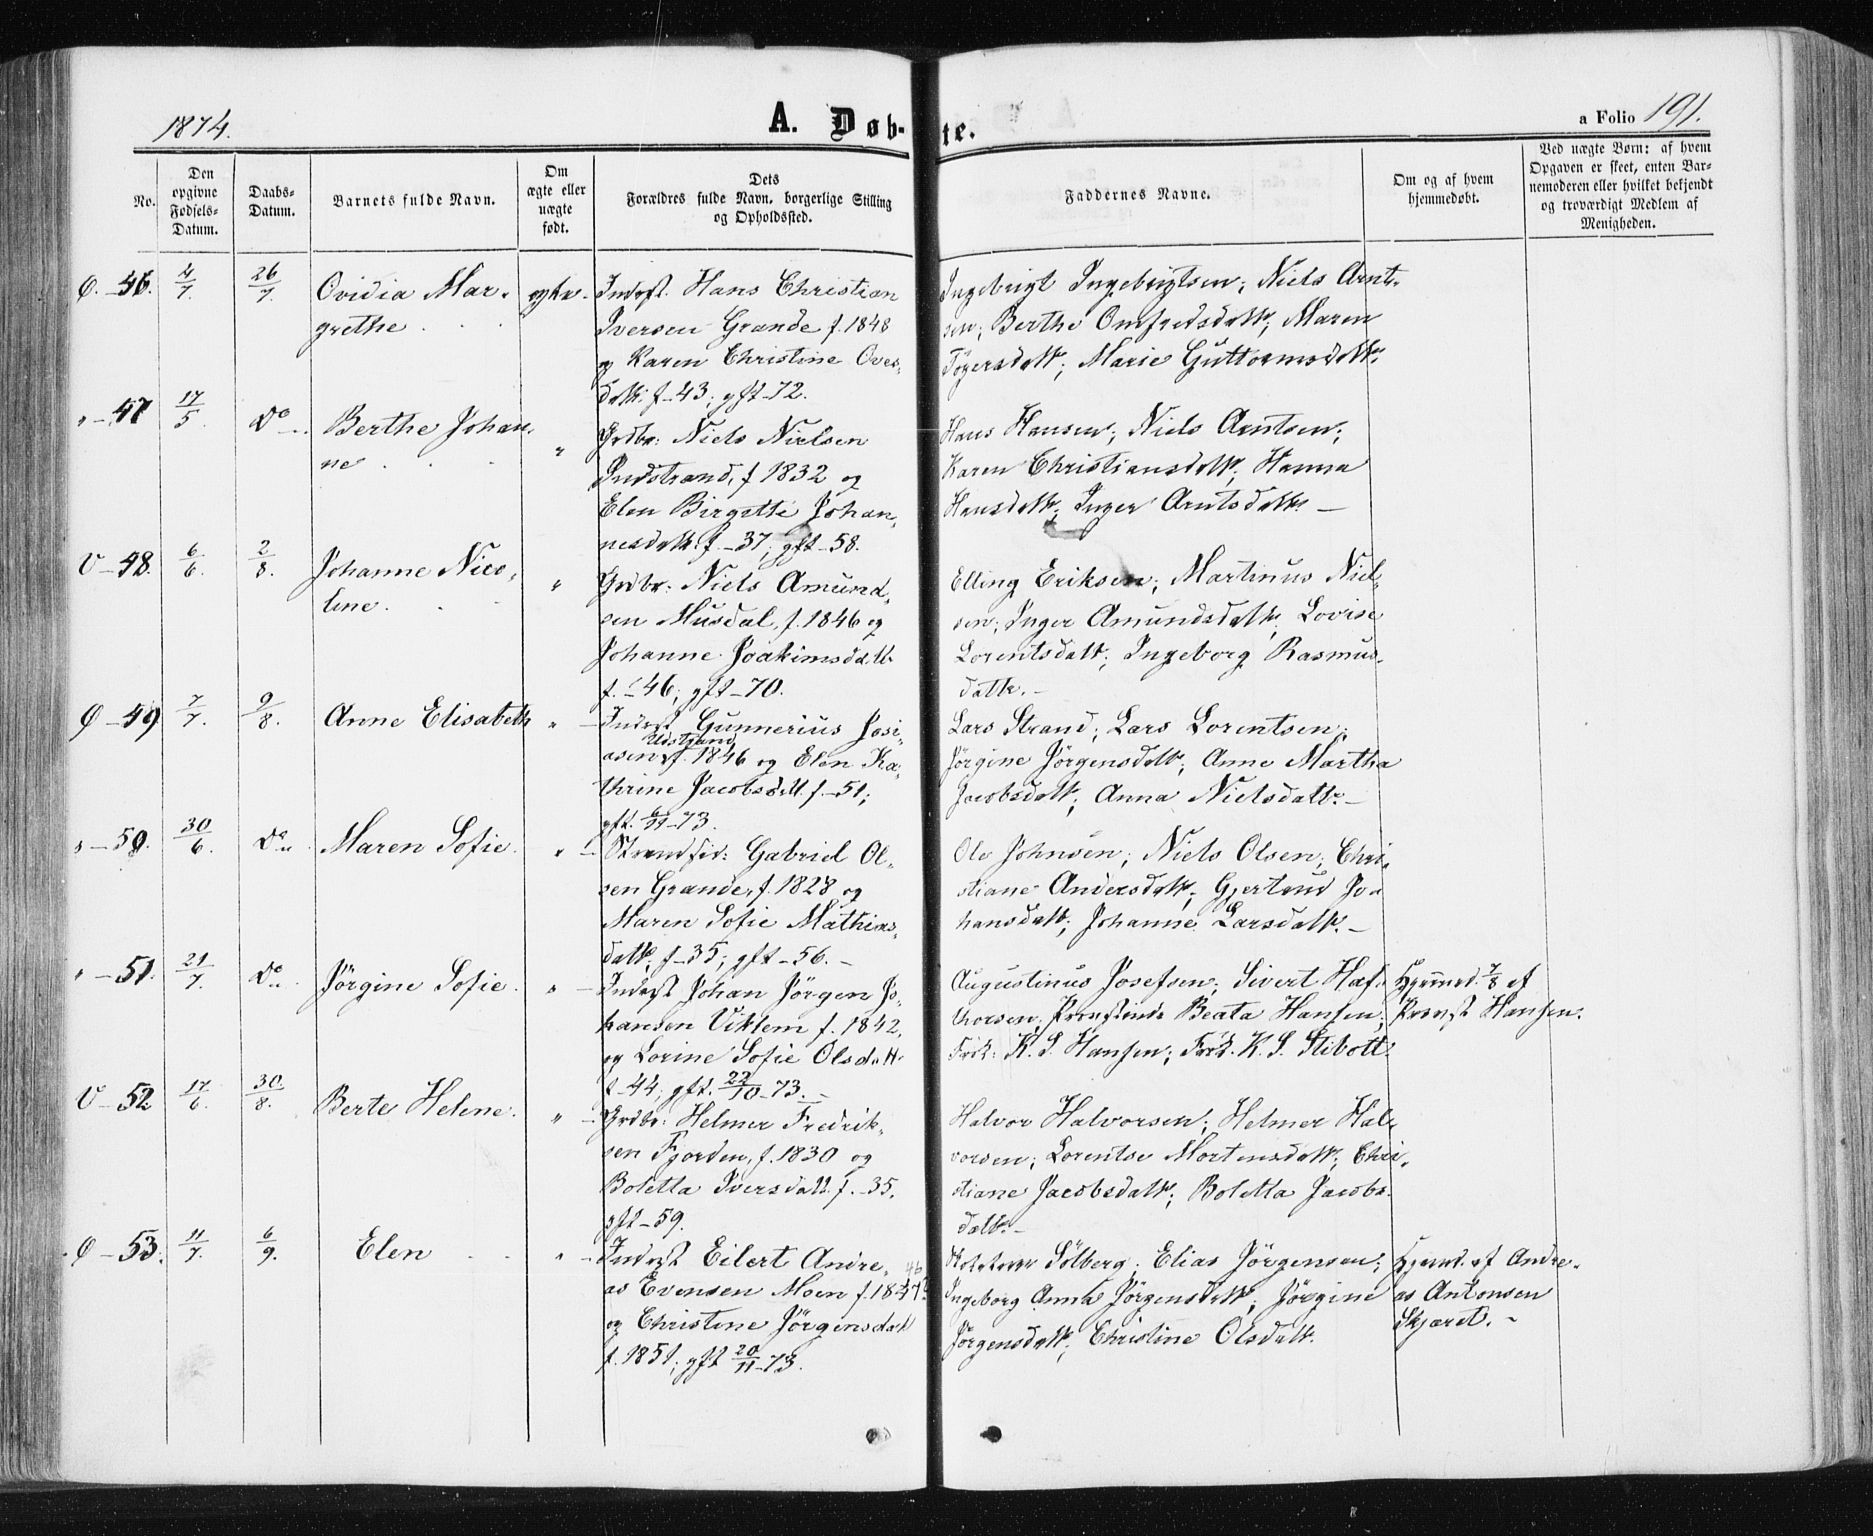 1874.
A. Døb-
te.
a Folio 191.
No.
Den opgivne Fødsels-Datum.
Daabs-Datum.
Barnets fulde Navn.
Om ægte eller uægte født.
Dets
Forældres fulde Navn, borgerlige Stilling
og Opholdssted.
Faddernes Navne.
Om og af hvem
hjemmedøbt.
Ved uægte Børn: af hvem
Opgaven er skeet, enten Bar-
nemoderen eller hvilket bekjendt
og troværdigt Medlem af
Menigheden.
Ø. – 46. 4/7. 26/7. Ovidia Mar- ægte. Inderst. Hans Christian
grethe . . . Iversen Grande f. 1848
og Karen Christine Oves-
datt: f – 43; gft – 72.
Ingebrigt Ingebrigtsen; Niels Arnt-
sen; Berthe Omfredsdatt; Maren
Tøgersdatt; Marie Guttormsdatt.
" – 47 17/5. Do. Berthe Johan- " Grdbr: Niels Nielsen
ne . . . Indstrand, f 1832 og
Elen Birgitte Johan-
nesdatt: f – 37; gft – 58.
Hans Hansen; Niels Arntsen;
Karen Christiansdatt; Hanna
Hansdatt; Inger Arntsdatt. –
V – 48. 6/6. 2/8. Johanne Nico- " Grdbr: Niels Amund-
line . . . sen Musdal, f. 1846 og
Johanne Joakimsdatt
f. – 46; gft – 70.
Elling Eriksen; Martinus Niel-
sen; Inger Amundsdatt; Lovise
Lorentsdatt; Ingeborg Rasmus-
datt. –
Ø – 49 7/7. 9/8. Anne Elisabeth " – Inderst Gunnerius Josi-
Udstrand
asen f. 1846 og Elen Ka-
thrine Jacobsdatt. f. – 51;
gft. 6/11 – 73.
Lars Strand; Lars Lorentsen;
Jørgine Jørgensdatt; Anne Martha
Jacobsdatt; Anna Nielsdatt. –
" – 50. 30/6. Do. Maren Sofie. " – Strandsid: Gabriel Ol-
sen Grande, f. 1828 og
Maren Sofie Mathias-
datt; f – 35; gft – 56. –
Ole Johnsen; Niels Olsen; Chri-
stiane Andersdatt; Gjertrud Jo-
hansdatt; Johanne Larsdatt. –
" – 51. 21/7. Do. Jørgine Sofie. " – Inderst Johan Jørgen Jo-
hansen Viklem f. 1842,
og Lorine Sofie Olsdatt
f – 44, gft. 22/10 – 73. –
Augustinus Josefsen; Sivert Haf-
thorsen; Provstinde Beata Hansen;
Frøk: K. S. Hansen; Frøk. K. S. Stibolt.
Hjemmed. 7/8 af
Provst Hansen.
V – 52 17/6. 30/8. Berte Helene. " – Grdbr: Helmer Fredrik-
sen Fjorden, f. 1830 og
Boletta Iversdatt. f. – 35,
gft – 59.
Halvor Halvorsen; Helmer Hal-
vorsen; Lorentse Mortensdatt; Chri-
stiane Jacobsdatt; Boletta Jacobs-
datt. –
Ø – 53. 11/7. 6/9. Elen . . " – Inderst Eilert Andre-
as Evensen Moen f. 1847 46?
og Christine Jørgensdatt
f. 1851; gft 20/11 – 73.
Sølberg; Elias Jørgensen;
Ingeborg Anna Jørgensdatt; Jørgine
Jørgensdatt; Christine Olsdatt.
Hjemmd. af Andre-
as Antonsen
Skjæret. –